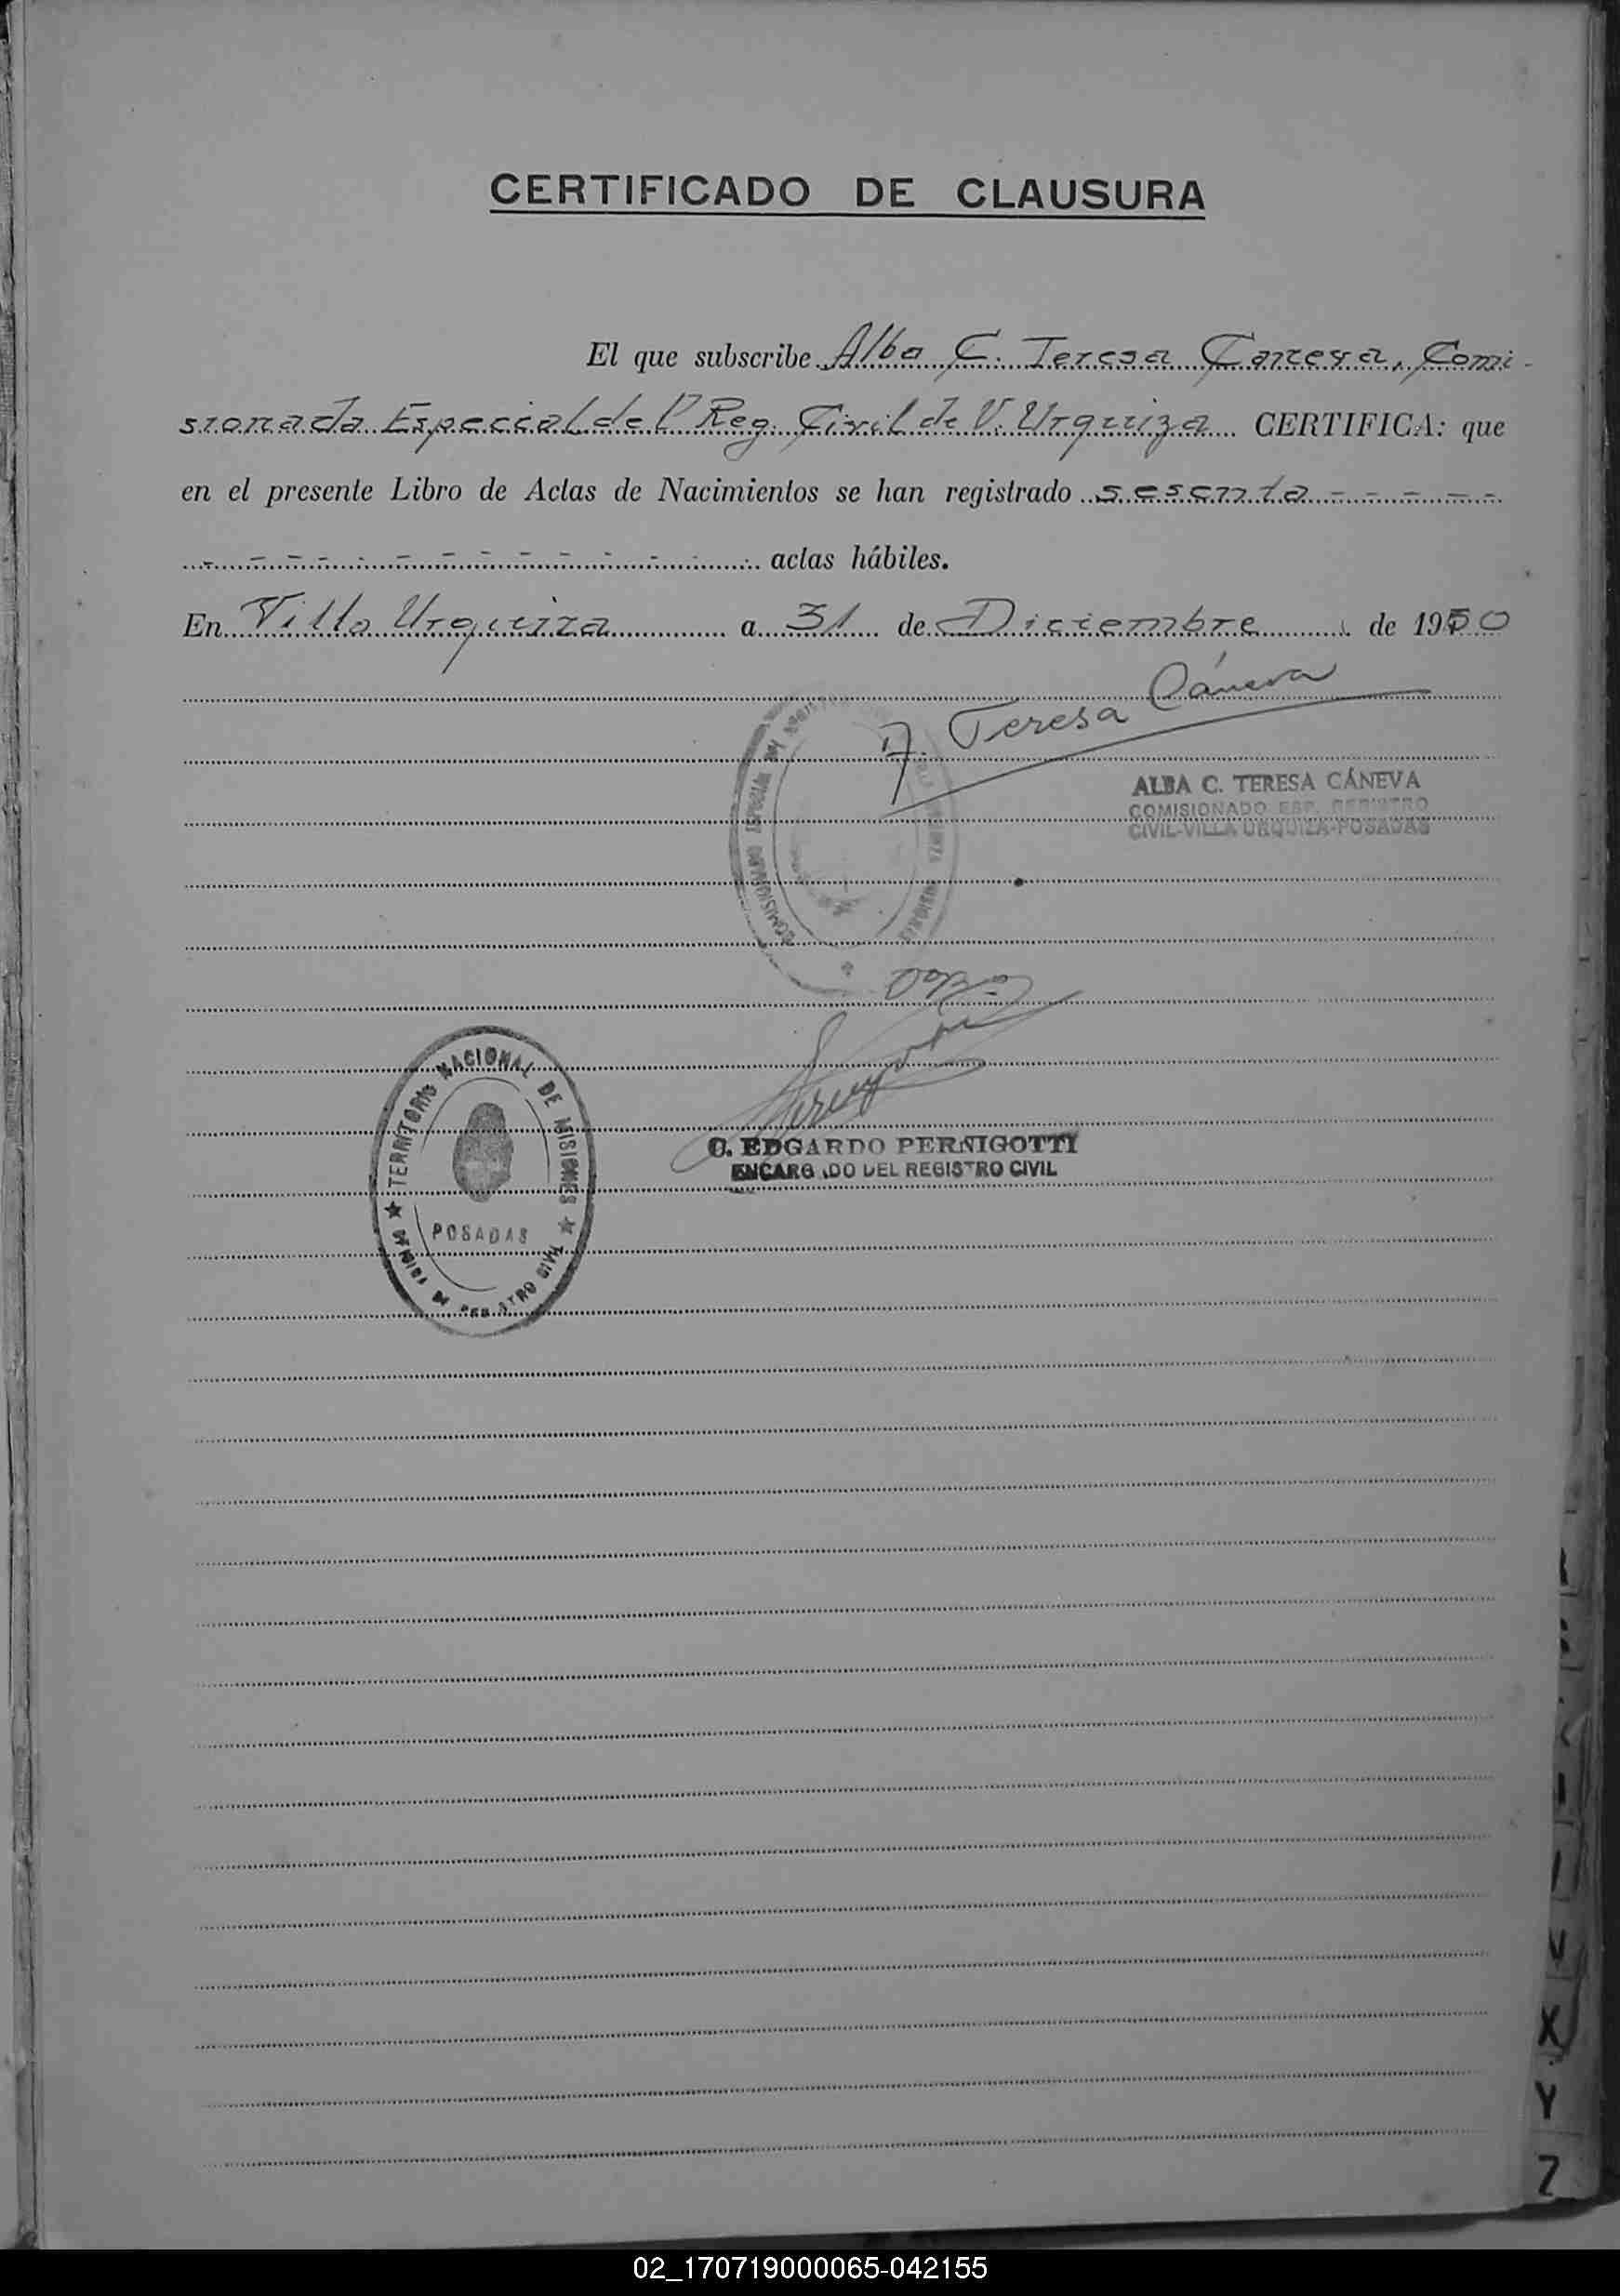 CERTIFICADO DE CLAUSURA
El que subscribe Alba C. Teresa Caneva, Comi-
sionada Especial del Reg. Civil de V. Urquiza CERTIFICA: que
en el presente Libro de Actas de Nacimientos se han registrado sesenta - - - - -
- - - - - - - - - - - - actas hábiles.
En Villa Urquiza a 31 de Diciembre de 1950
A. Teresa Cáneva
ALBA C. TERESA CÁNEVA
COMISIONADO ESP. REGISTRO
CIVIL-VILLA URQUIZA-POSADAS
COMISIONADO ESPECIAL DEL
MISIONES
TERRITORIO NACIONAL DE MISIONES
POSADAS
REGISTRO CIVIL
C. EDGARDO PERNIGOTTI
ENCARGADO DEL REGISTRO CIVIL
V
X
Y
Z
02_170719000065-042155